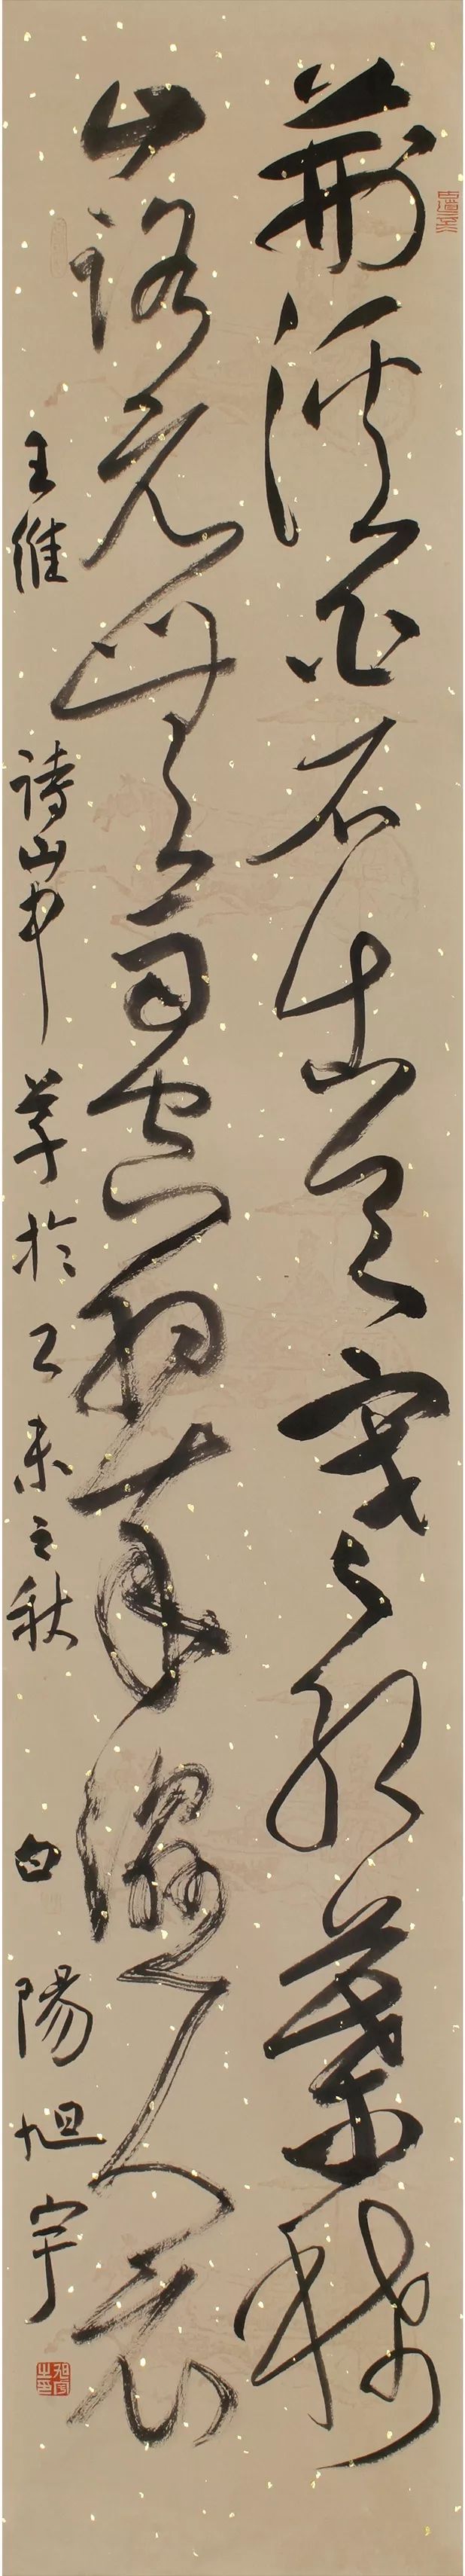 荆溪白石出天寒紅葉稀
山路元無雨空翠濕人衣
王維詩山中草於乙未之秋白陽旭宇
旭宇之印